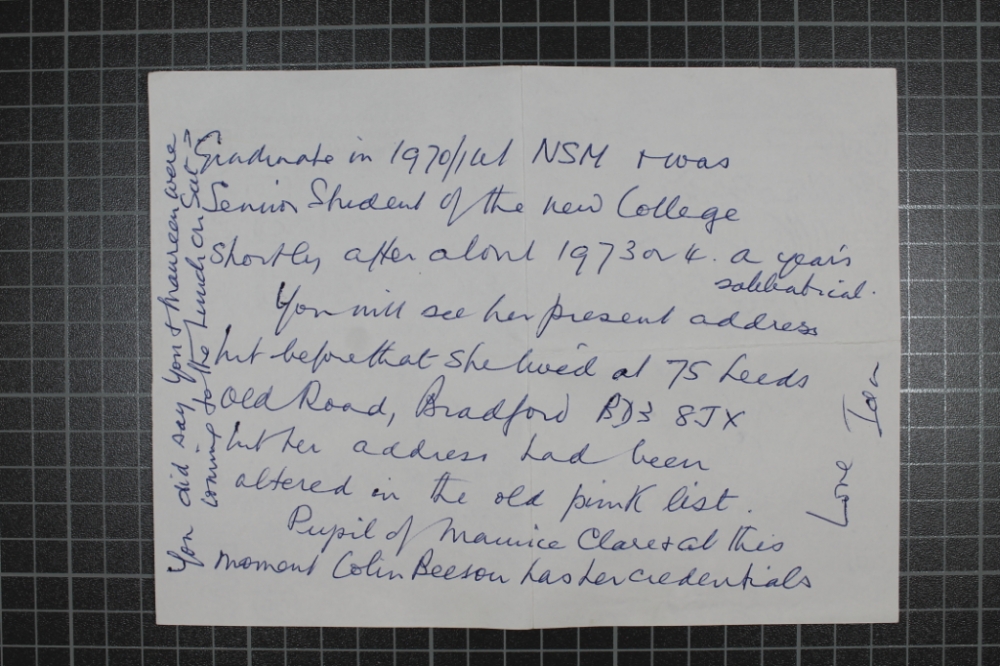 Graduate in 1970/1 at NSM + was
Senior Student of the new College
shortly after about 1973 or 4. a year's
sabbatical.
You will see her present address
but before that she lived at 75 Leeds
Old Road, Bradford BD3 8JX
but her address had been
altered in the old pink list.
Pupil of Maurice Clare + at this
moment Colin Beeson has her credentials
Love Ida
You did say you + Maureen were
coming to the Lunch on Sat